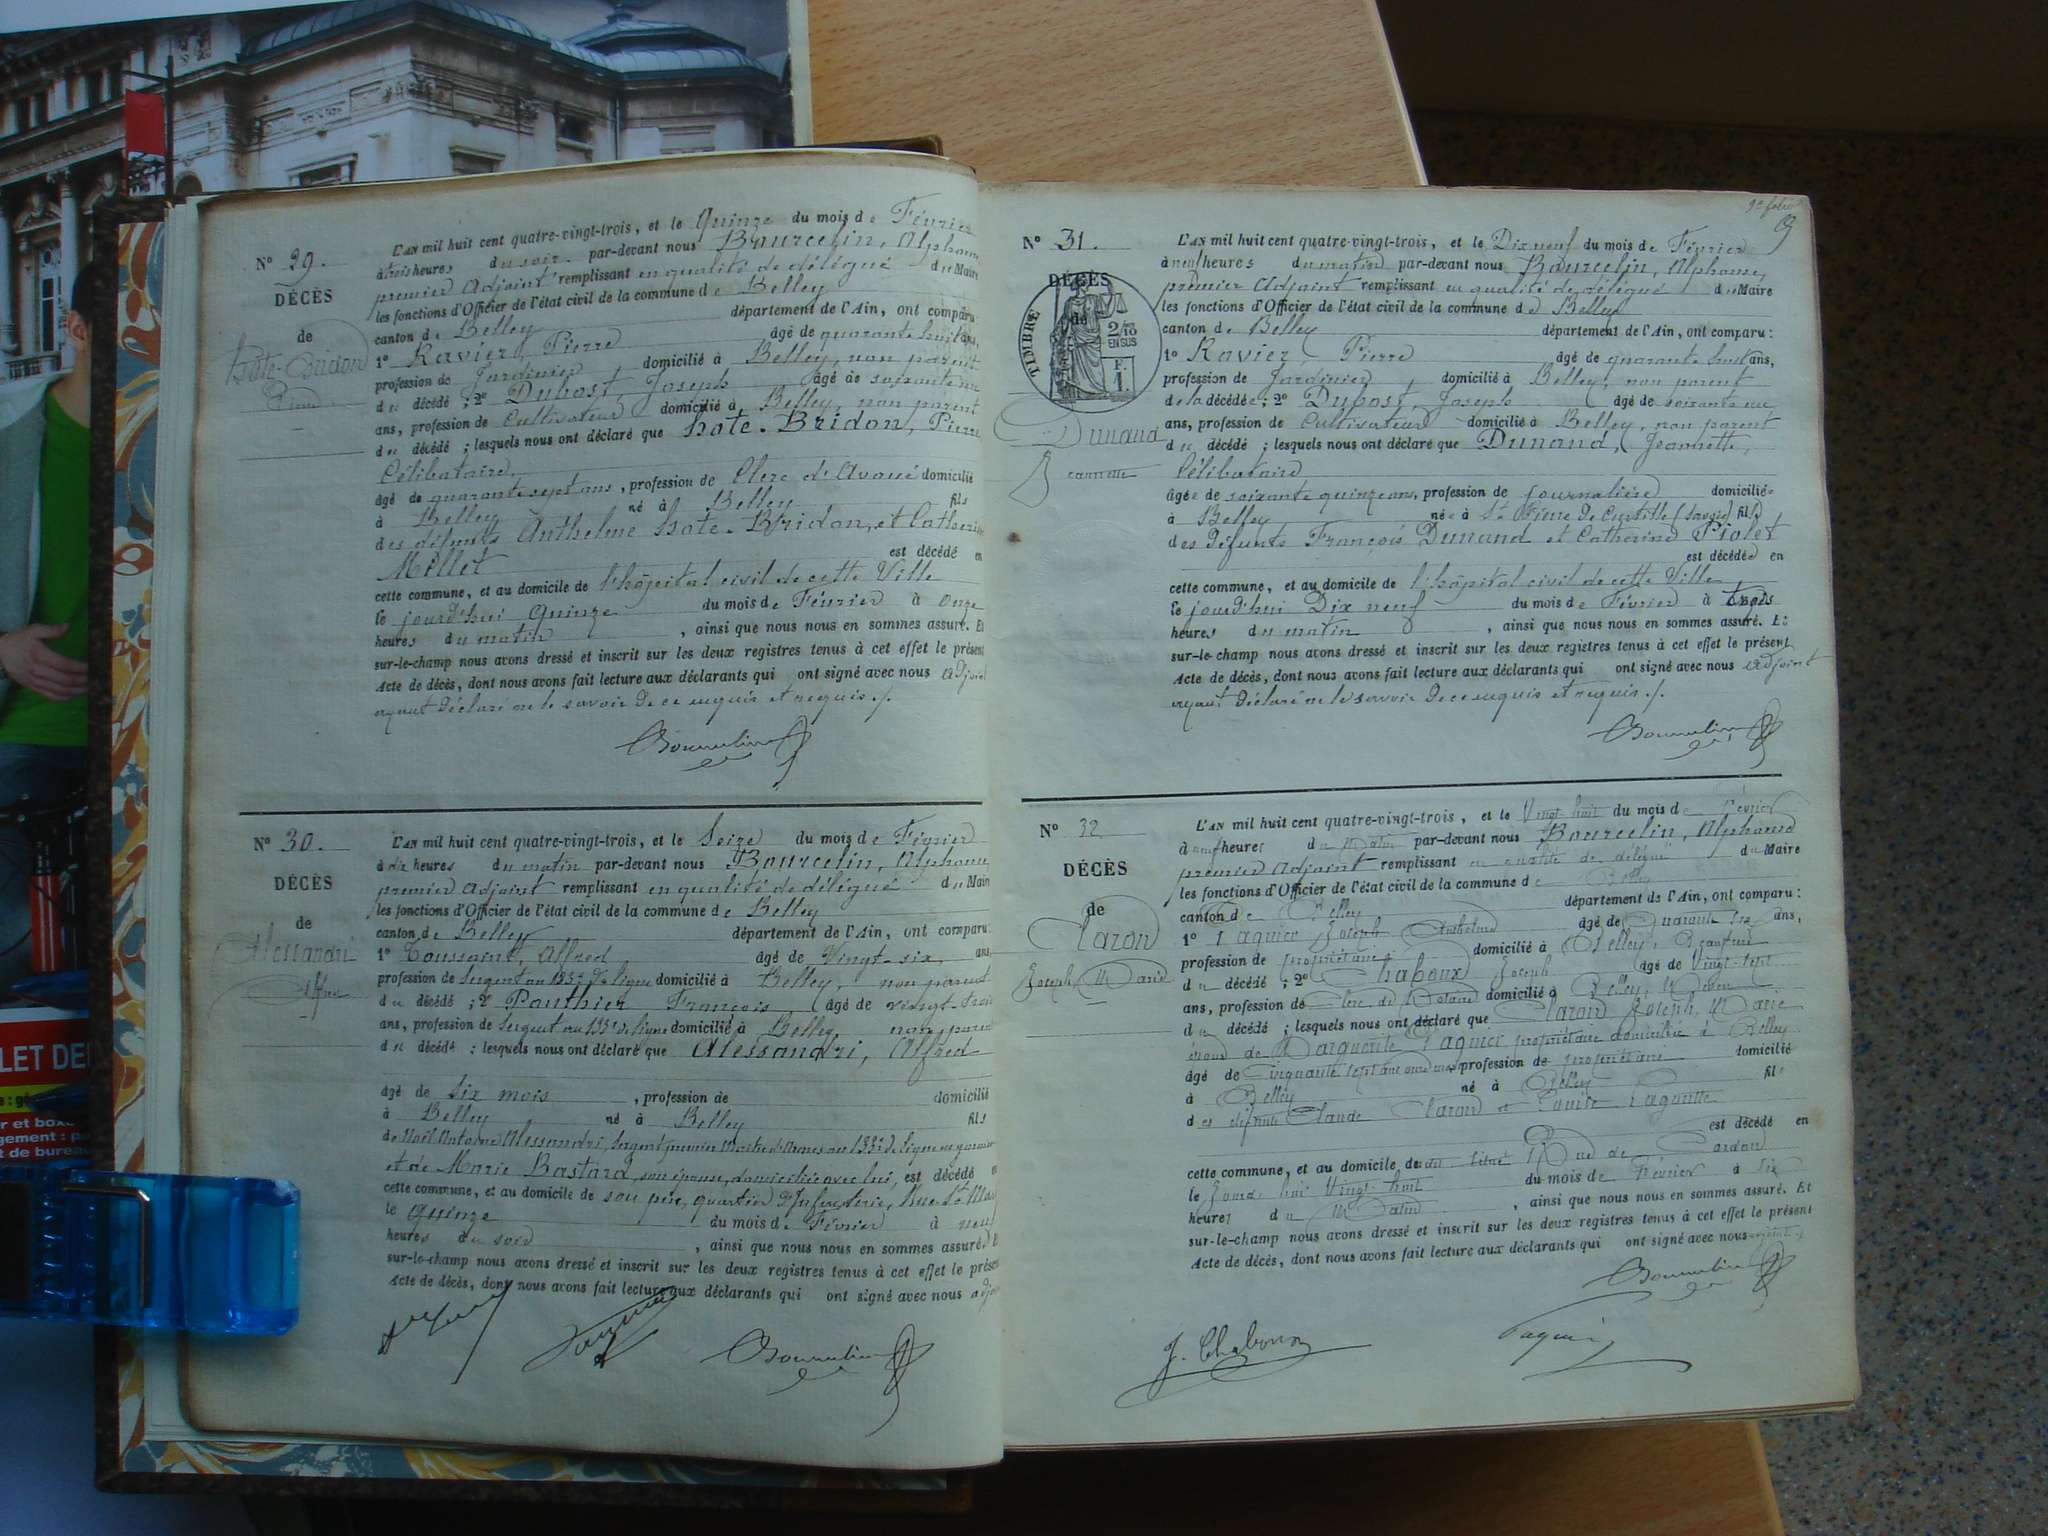 N° 29.
DÉCÈS
de
Hote-Bridon
Pierre
L'AN mil huit cent quatre-vingt-trois, et le Quinze du mois de Février
à trois heures du soir par-devant nous Bourcelin, Alphonse
premier Adjoint remplissant en qualité de délégué du Maire
les fonctions d'Officier de l'état civil de la commune de Belley
canton de Belley département de l'Ain, ont comparu
1° Ravier, Pierre âgé de quarante huit ans,
profession de Jardinier, domicilié à Belley, non parent
du décédé ; 2° Dubost, Joseph âgé de soixante un
ans, profession de Cultivateur domicilié à Belley, non parent
du décédé ; lesquels nous ont déclaré que Hote-Bridon, Pierre
Célibataire
âgé de quarante sept ans, profession de Clerc d'Avoué domicilié
à Belley né à Belley fils
des défunts Anthelme Hote-Bridon, et Catherine
Millet est décédé en
cette commune, et au domicile de l'hôpital civil de cette Ville
le jourd'hui Quinze du mois de Février à Onze
heures du matin, ainsi que nous nous en sommes assuré. Et
sur-le-champ nous avons dressé et inscrit sur les deux registres tenus à cet effet le présent
Acte de décès, dont nous avons fait lecture aux déclarants qui ont signé avec nous adjoint
ayant déclaré ne le savoir de ce enquis et requis ./.
N° 30.
DÉCÈS
de
Alessandri
Alfred
L'AN mil huit cent quatre-vingt-trois, et le Seize du mois de Février
à dix heures du matin par-devant nous Bourcelin, Alphonse
premier Adjoint remplissant en qualité de délégué du Maire
les fonctions d'Officier de l'état civil de la commune de Belley
canton de Belley département de l'Ain, ont comparu:
1° Toussaint, Alfred âgé de Vingt-six, ans
profession de Sergent au 133e de ligne domicilié à Belley, non parent
du décédé ; 2° Panthier François âgé de vingt-trois
ans, profession de Sergent au 133e de ligne domicilié à Belley, non parent
du décédé ; lesquels nous ont déclaré que Alessandri, Alfred
âgé de Six mois, profession de domicilié
à Belley né à Belley fils
de Noël Antoine Alessandri, Sergent premier Maitre d'Armes au 133e de ligne
et de Marie Bastard, son épouse, domiciliée avec lui, est décédé en
cette commune, et au domicile de son père, quartier d'Infanterie, Rue St
le Quinze du mois de Février à neuf
heures du soir, ainsi que nous nous en sommes assuré. Et
sur-le-champ nous avons dressé et inscrit sur les deux registres tenus à cet effet le présent
Acte de décès, dont nous avons fait lecture aux déclarants qui ont signé avec nous adjoint
N° 31.
DÉCÈS
de
TIMBRE
2/10
EN SUS
F.
1.
Dunand
Jeannette
L'AN mil huit cent quatre-vingt-trois, et le Dix neuf du mois de Février
à neuf heures du matin par-devant nous Bourcelin, Alphonse,
Premier Adjoint remplissant en qualité de délégué du Maire
les fonctions d'Officier de l'état civil de la commune de Belley
canton de Belley département de l'Ain, ont comparu:
1° Ravier, Pierre âgé de quarante huit ans,
profession de Jardinier, domicilié à Belley, non parent
de la décédée ; 2° Dubost, Joseph âgé de soixante un
ans, profession de Cultivateur domicilié à Belley, non parent
du décédé ; lesquels nous ont déclaré que Dunand, Jeannette,
Célibataire
âgée de soixante quinze ans, profession de journalière domiciliée
à Belley née à St Pierre de Curtille (Savoie) fille
des défunts François Dunand et Catherine Piolet
est décédée en
cette commune, et au domicile de l'hôpital civil de cette Ville,
le jourd'hui Dix neuf du mois de Février à trois
heures du matin, ainsi que nous nous en sommes assuré. Et
sur-le-champ nous avons dressé et inscrit sur les deux registres tenus à cet effet le présent
Acte de décès, dont nous avons fait lecture aux déclarants qui ont signé avec nous adjoint
ayant déclaré ne le savoir de ce enquis et requis ./.
N° 32
DÉCÈS
de
Claron
Joseph Marie
L'AN mil huit cent quatre-vingt-trois, et le Vingt huit du mois de Février
à neuf heures du Matin par-devant nous Bourcelin, Alphonse
premier Adjoint remplissant en qualité de délégué du Maire
les fonctions d'Officier de l'état civil de la commune de Belley
canton de Belley département de l'Ain, ont comparu:
1° Paquier Joseph Anthelme âgé de Quarante six ans,
profession de propriétaire domicilié à Belley, Beaufrère
du décédé ; 2° Chaboux Joseph âgé de Vingt sept
ans, profession de Clerc de Notaire domicilié à Belley,
du décédé ; lesquels nous ont déclaré que Claron, Joseph, Marie
époux de Marguerite Paquier propriétaire domiciliée à Belley
âgé de Cinquante sept ans onze mois profession de propriétaire domicilié
à Belley né à Belley fils
des défunts Claude Claron et Louise Paquette
est décédé en
cette commune, et au domicile de Rue de Cordon
le Jourd'hui Vingt huit du mois de Février à six
heures du Matin, ainsi que nous nous en sommes assuré. Et
sur-le-champ nous avons dressé et inscrit sur les deux registres tenus à cet effet le présent
Acte de décès, dont nous avons fait lecture aux déclarants qui ont signé avec nous adjoint
J. Chaboux
Paquier